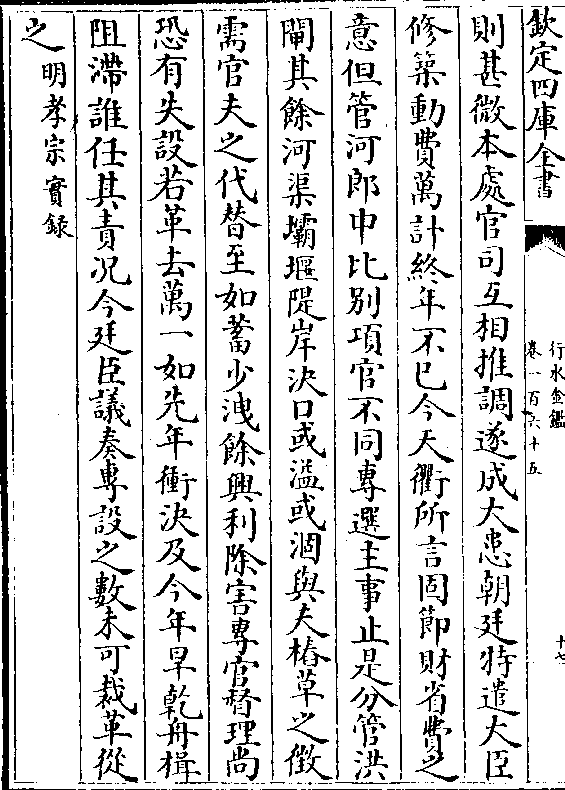 欽定四庫全書
行水金鑑
卷一百六十五
十七
則甚微本處官司互相推調遂成大患朝廷特遣大臣
修築動費萬計終年不已今天衢所言固節財省費之
意但管河郎中比別項官不同專選主事止是分管洪
閘其餘河渠壩堰隄岸決口或溢或涸與夫樁草之徵
需官夫之代替至如蓄少洩餘興利除害專官督理尚
恐有失設若革去萬一如先年衝決及今年旱乾舟楫
阻滯誰任其責况今廷臣議奏專設之數未可裁革從
之明孝宗實録